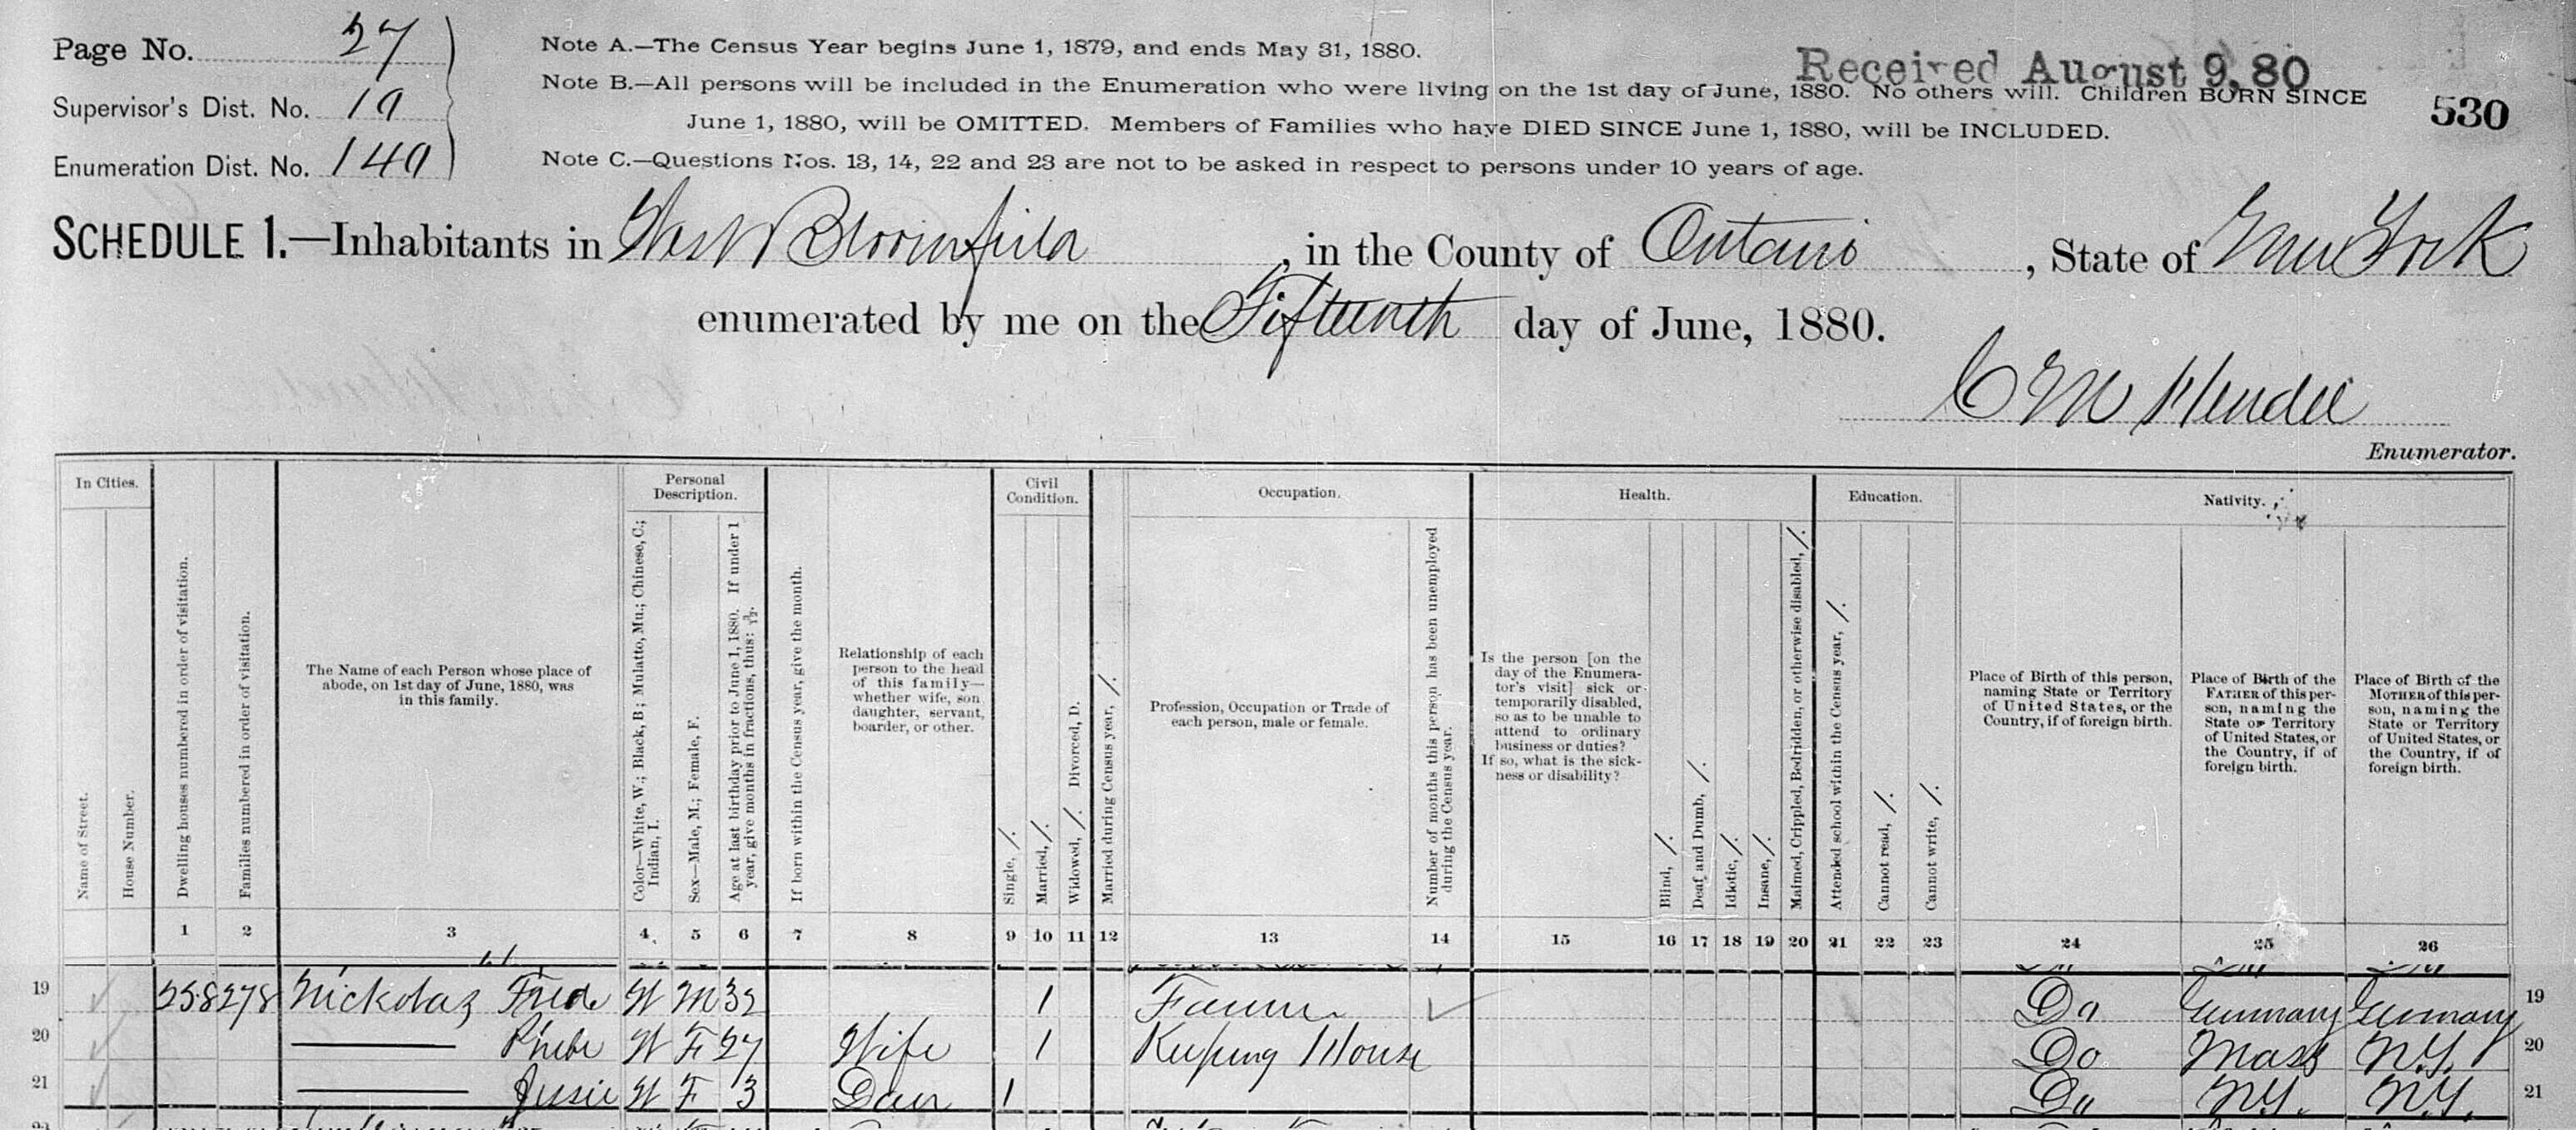 Page No. 27
Supervisor's Dist. No. 19
Enumeration Dist. No. 149
Note A.—The Census Year begins June 1, 1879, and ends May 31, 1880.
Note B.—All persons will be included in the Enumeration who were living on the 1st day of June, 1880. No others will. Children BORN SINCE
June 1, 1880, will be OMITTED. Members of Families who have DIED SINCE June 1, 1880, will be INCLUDED.
Note C.—Questions Nos. 13, 14, 22 and 23 are not to be asked in respect to persons under 10 years of age.
Received August 9, 80
530
SCHEDULE 1.—Inhabitants in West Bloomfield, in the County of Ontario, State of New York
enumerated by me on the Fifteenth day of June, 1880.
C M Hendee
Enumerator.
In Cities.
Name of Street.
House Number.
Dwelling houses numbered in order of visitation.
Families numbered in order of visitation.
The Name of each Person whose place of
abode, on 1st day of June, 1880, was
in this family.
Personal
Description.
Color—White, W.; Black, B.; Mulatto, Mu.; Chinese, C.;
Indian, I.
Sex—Male, M.; Female, F.
Age at last birthday prior to June 1, 1880. If under 1
year, give months in fractions, thus: 3/12.
If born within the Census year, give the month.
Relationship of each
person to the head
of this family—
whether wife, son
daughter, servant,
boarder, or other.
Civil
Condition.
Single, /.
Married, /.
Widowed, /. Divorced, D.
Married during Census year, /.
Occupation.
Profession, Occupation or Trade of
each person, male or female.
Number of months this person has been unemployed
during the Census year.
Health.
Is the person [on the
day of the Enumera-
tor's visit] sick or
temporarily disabled,
so as to be unable to
attend to ordinary
business or duties?
If so, what is the sick-
ness or disability?
Blind, /.
Deaf and Dumb, /.
Idiotic, /.
Insane, /.
Maimed, Crippled, Bedridden, or otherwise disabled, /.
Education.
Attended school within the Census year, /.
Cannot read, /.
Cannot write, /.
Nativity.
Place of Birth of this person,
naming State or Territory
of United States, or the
Country, if of foreign birth.
Place of Birth of the
FATHER of this per-
son, naming the
State or Territory
of United States, or
the Country, if of
foreign birth.
Place of Birth of the
MOTHER of this per-
son, naming the
State or Territory
of United States, or
the Country, if of
foreign birth.
1 2 3 4 5 6 7 8 9 10 11 12 13 14 15 16 17 18 19 20 21 22 23 24 25 26
19 258 278 Nickolas Fred W M 32 1 Farmer Do Germany Germany 19
20 —— Phebe W F 27 Wife 1 Keeping House Do Mass N.Y. 20
21 —— Jessie W F 3 Daur 1 Do N.Y. N.Y. 21